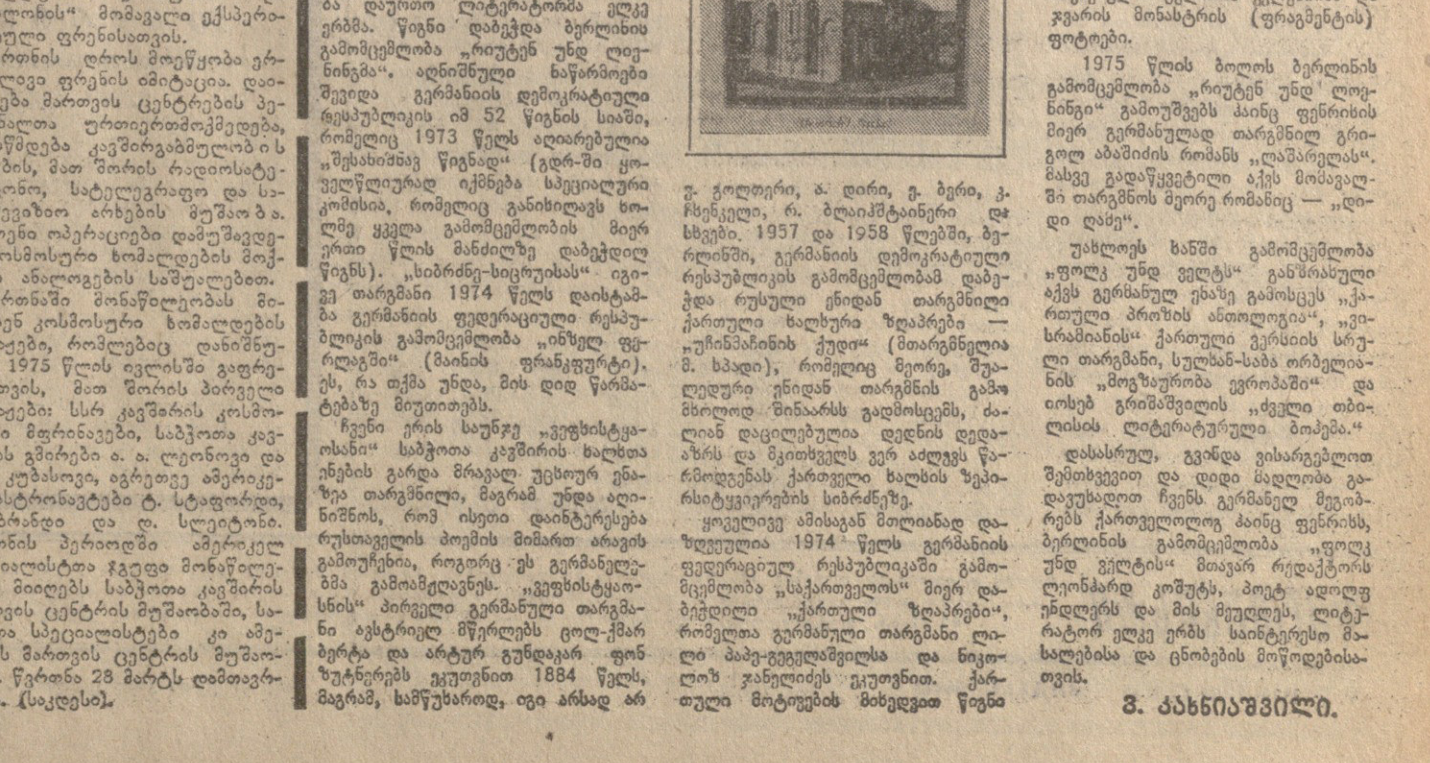 ლონის“ მომავალი ექსპერი-
ული ფრენისათვის.
რთნის დროს მოეწყობა ერ-
ლავი ფრენის იმიტაცია. დაი-
ება მართვის ცენტრების პე-
ნალთა ურთიერთმოქმედება,
წმდება კავშირგაბმულობის
ბის, მათ შორის რადიოსატე-
ონო, სატელეგრაფო და სა-
ევიზიო არხების მუშაობა.
ენი ოპერაციები დამუშავდე-
ოსმოსური ხომალდების მოქ-
ანალოგების საშუალებით.
რთნაში მონაწილეობას მი-
ენ კოსმოსური ხომალდების
აჟები, რომლებიც დანიშნუ-
1975 წლის ივლისში გაფრე-
თვის, მათ შორის პირველი
აჟები: სსრ კავშირის კოსმო-
ი მფრინავები, საბჭოთა კავ-
ს გმირები ა. ა. ლეონოვი და
კუბასოვი, აგრეთვე ამერიკე-
სტრონავტები ტ. სტაფორდი,
ბრანდი და დ. სლეიტონი.
ნის პერიოდში ამერიკელ
იალისტთა ჯგუფი მონაწილე-
მიიღებს საბჭოთა კავშირის
ვის ცენტრის მუშაობაში, სა-
თა სპეციალისტები კი ამე-
ს მართვის ცენტრის მუშაო-
წვრთნა 28 მარტს დამთავრ-
(საკდესი).
ბა დაურთო ლიტერატორმა ელკე
ერბმა. წიგნი დაბეჭდა ბერლინის
გამომცემლობა „რიუტენ უნდ ლიე-
ნინგმა“. აღნიშნული ნაწარმოები
შევიდა გერმანიის დემოკრატიული
რესპუბლიკის იმ 52 წიგნის სიაში,
რომელიც 1973 წელს აღიარებულია
„შესანიშნავ წიგნად“ (გდრ-ში ყო-
ველწლიურად იქმნება სპეციალური
კომისია, რომელიც განიხილავს ხო-
ლმე ყველა გამომცემლობის მიერ
ერთი წლის მანძილზე დაბეჭდილ
წიგნს). „სიბრძნე-სიცრუისას“ იგი-
ვე თარგმანი 1974 წელს დაისტამ-
ბა გერმანიის ფედერაციული რესპუ-
ბლიკის გამომცემლობა „ინზელ ფე-
რლაგში“ (მაინის ფრანკფურტი).
ეს, რა თქმა უნდა, მის დიდ წარმა-
ტებაზე მიუთითებს.
ჩვენი ერის საუნჯე „ვეფხისტყა-
ოსანი“ საბჭოთა კავშირის ხალხთა
ენების გარდა მრავალ უცხოურ ენა-
ზეა თარგმნილი, მაგრამ უნდა აღი-
ნიშნოს, რომ ისეთი დაინტერესება
რუსთაველის პოემის მიმართ არავის
გამოუჩენია, როგორც ეს გერმანელე-
ბმა გამოამჟღავნეს. „ვეფხისტყაო-
სნის“ პირველი გერმანული თარგმა-
ნი ავსტრიელ მწერლებს ცოლ-ქმარ
ბერტა და არტურ გუნდაკარ ფონ
ზუტნერებს ეკუთვნით 1884 წელს,
მაგრამ, სამწუხაროდ, იგი არსად არ
ვ. გოლთერი, ა. დირი, ე. ბერი, კ.
ჩხენკელი, რ. ბლაიჰშტაინერი და
სხვები. 1957 და 1958 წლებში, ბე-
რლინში, გერმანიის დემოკრატიული
რესპუბლიკის გამომცემლობამ დაბე-
ჭდა რუსული ენიდან თარგმნილი
ქართული ხალხური ზღაპრები —
„უჩინმაჩინის ქუდი“ (მთარგმნელია
მ. სპადი), რომელიც მეორე, შუა-
ლედური ენიდან თარგმნის გამო
მხოლოდ შინაარსს გადმოსცემს, ძა-
ლიან დაცილებულია დედნის დედა-
აზრს და მკითხველს ვერ აძლევს წა-
რმოდგენას ქართველი ხალხის ზეპი-
რსიტყვიერების სიბრძნეზე.
ყოველივე ამისაგან მთლიანად და-
ზღვეულია 1974 წელს გერმანიის
ფედერაციულ რესპუბლიკაში გამო-
მცემლობა „საქართველოს“ მიერ და-
ბეჭდილი „ქართული ზღაპრები“,
რომელთა გერმანული თარგმანი ლი-
ლი პაპე-გეგელაშვილსა და ნიკო-
ლოზ ჯანელიძეს ეკუთვნით. ქარ-
თული მოტივების მიხედვით წიგნი
ჯვარის მონასტრის (ფრაგმენტის)
ფოტოები.
1975 წლის ბოლოს ბერლინის
გამომცემლობა „რიუტენ უნდ ლოე-
ნინგი“ გამოუშვებს ჰაინც ფენრიხის
მიერ გერმანულად თარგმნილ გრი-
გოლ აბაშიძის რომანს „ლაშარელას“.
მასვე გადაწყვეტილი აქვს მომავალ-
ში თარგმნოს მეორე რომანიც — „დი-
დი ღამე“.
უახლოეს ხანში გამომცემლობა
„ფოლკ უნდ ველტს“ განზრახული
აქვს გერმანულ ენაზე გამოსცეს „ქა-
რთული პროზის ანთოლოგია“, „ვი-
სრამიანის“ ქართული ვერსიის სრუ-
ლი თარგმანი, სულხან-საბა ორბელია-
ნის „მოგზაურობა ევროპაში“ და
იოსებ გრიშაშვილის „ძველი თბი-
ლისის ლიტერატურული ბოჰემა.“
დასასრულ, გვინდა ვისარგებლოთ
შემთხვევით და დიდი მადლობა გა-
დავუხადოთ ჩვენს გერმანელ მეგობ-
რებს ქართველოლოგ ჰაინც ფენრიხს,
ბერლინის გამომცემლობა „ფოლკ
უნდ ველტის“ მთავარ რედაქტორს
ლეონჰარდ კოშუტს, პოეტ ადოლფ
ენდლერს და მის მეუღლეს, ლიტე-
რატორ ელკე ერბს საინტერესო მა-
სალებისა და ცნობების მოწოდებისა-
თვის.
ვ. კახნიაშვილი.